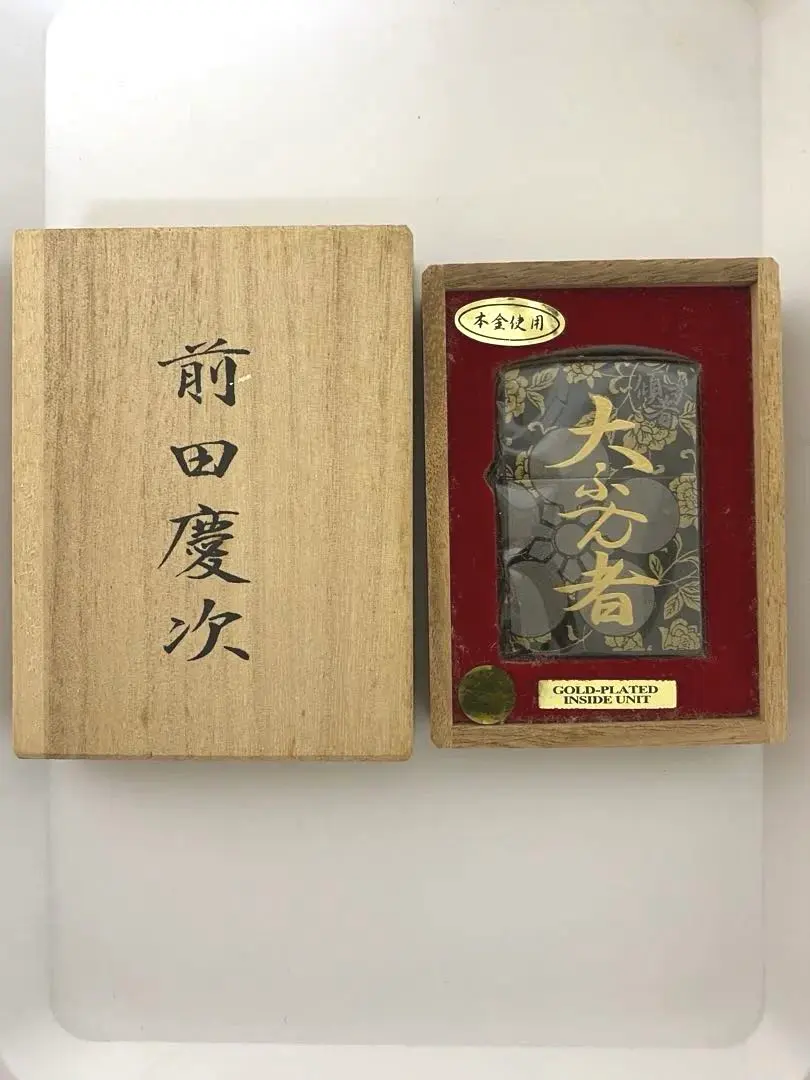 前田慶次
本金使用
大ふへん者
GOLD-PLATED
INSIDE UNIT